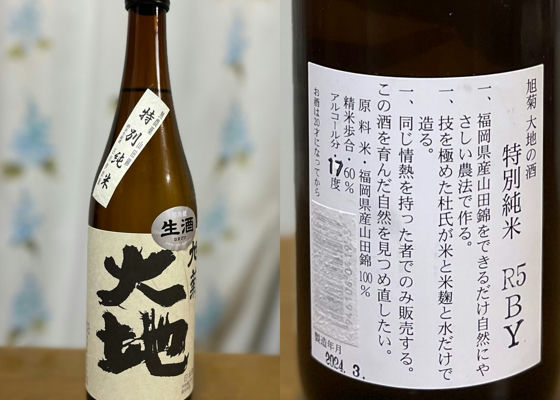 特別純米
生酒
大地
旭菊 大地の酒
特別純米 R5BY
一、福岡県産山田錦をできるだけ自然にや
さしい農法で作る。
一、技を極めた杜氏が米と米麹と水だけで
造る。
一、同じ情熱を持った者でのみ販売する。
この酒を育んだ自然を見つめ直したい。
原料米・福岡県産山田錦100%
精米歩合・60%
アルコール分 17度
お酒は20才になってから
製造年月
2024.3.